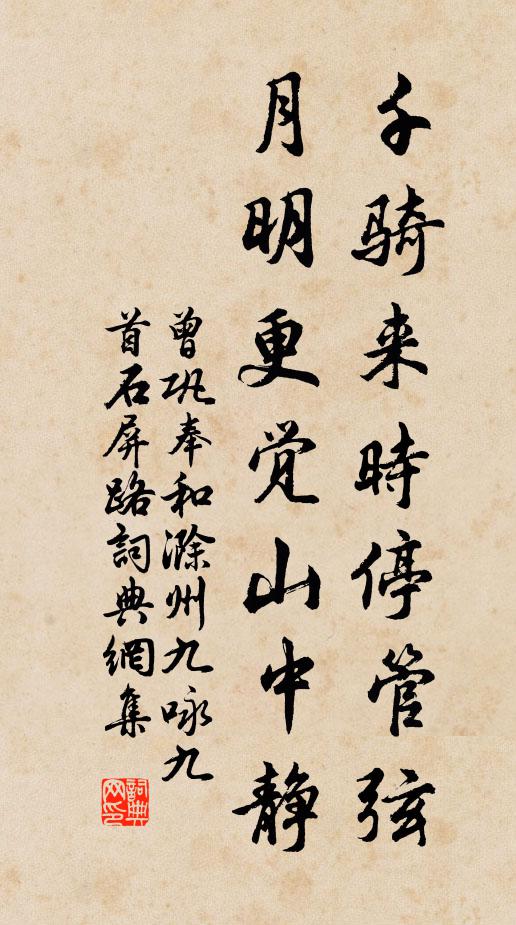 千骑来時停管弦
月明更觉山中静
曾巩奉和滁州九咏九
首石屏路詞典網集
詞典
网印